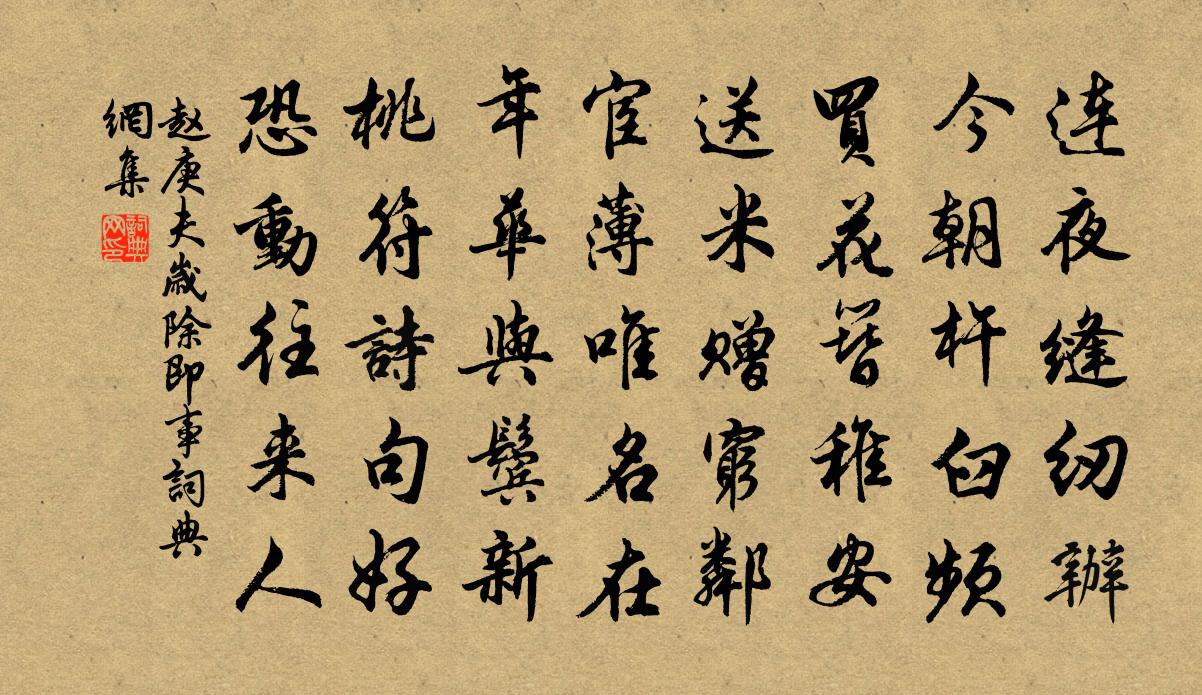 連夜縫紉辦
今朝杵臼頻
買花簪稚安
送米赠窮鄰
宦薄唯名在
年華與鬢新
桃符詩句好
恐動往来人
赵庚夫歲除即事詞典
網集
詞典网印